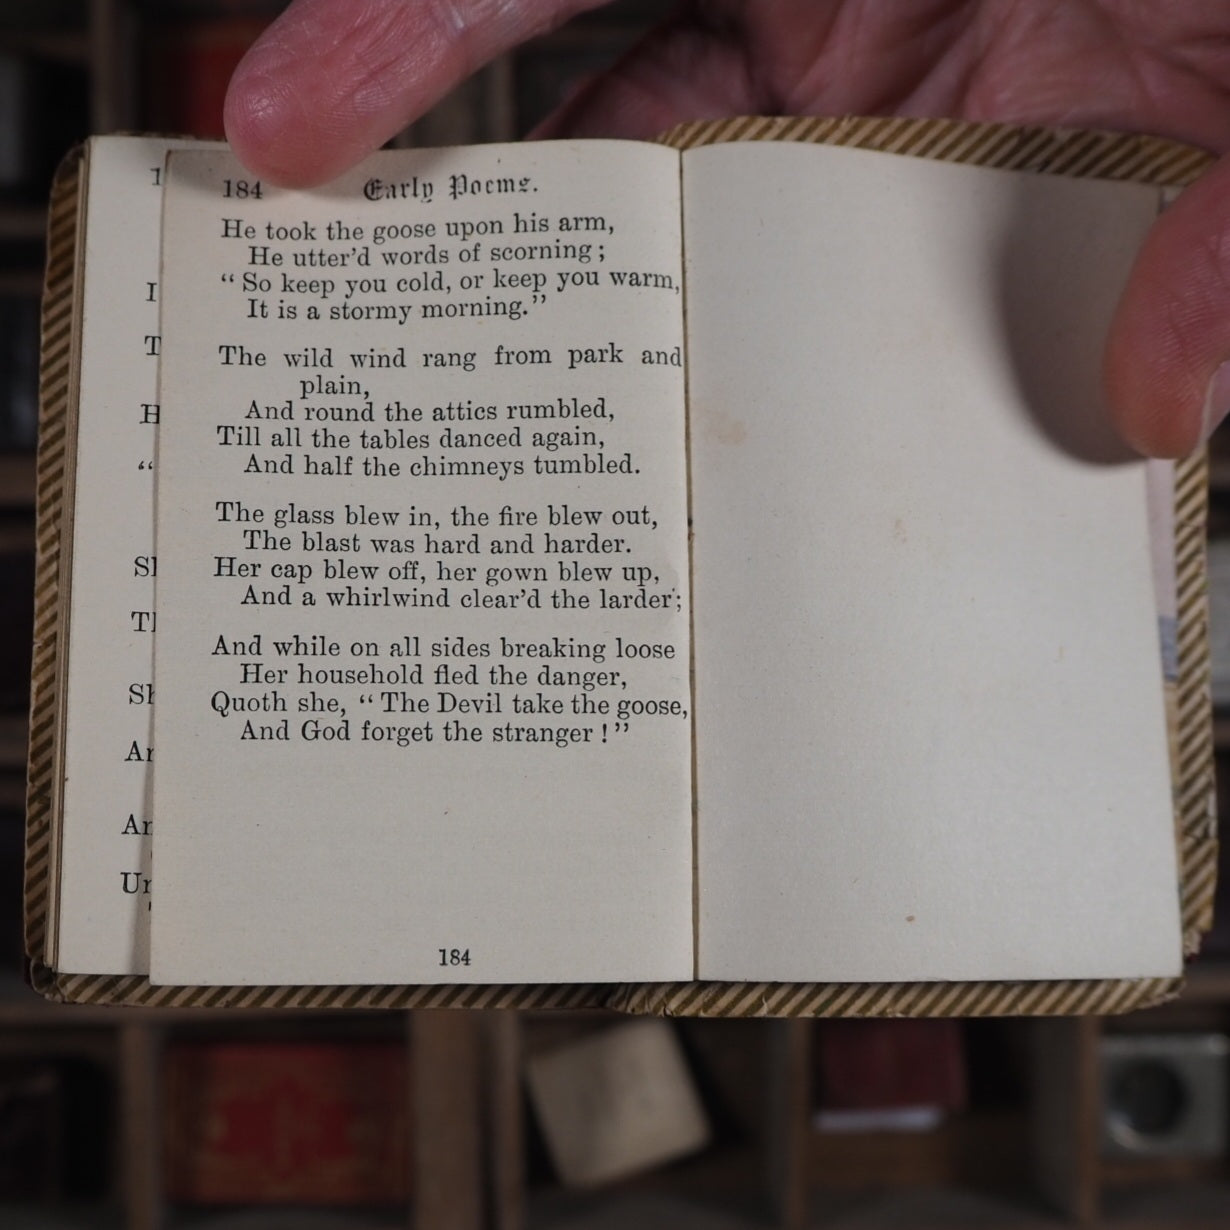 184 Early Poems.
He took the goose upon his arm,
He utter'd words of scorning;
"So keep you cold, or keep you warm,
It is a stormy morning."
The wild wind rang from park and
plain,
And round the attics rumbled,
Till all the tables danced again,
And half the chimneys tumbled.
The glass blew in, the fire blew out,
The blast was hard and harder.
Her cap blew off, her gown blew up,
And a whirlwind clear'd the larder;
And while on all sides breaking loose
Her household fled the danger,
Quoth she, "The Devil take the goose,
And God forget the stranger!"
184